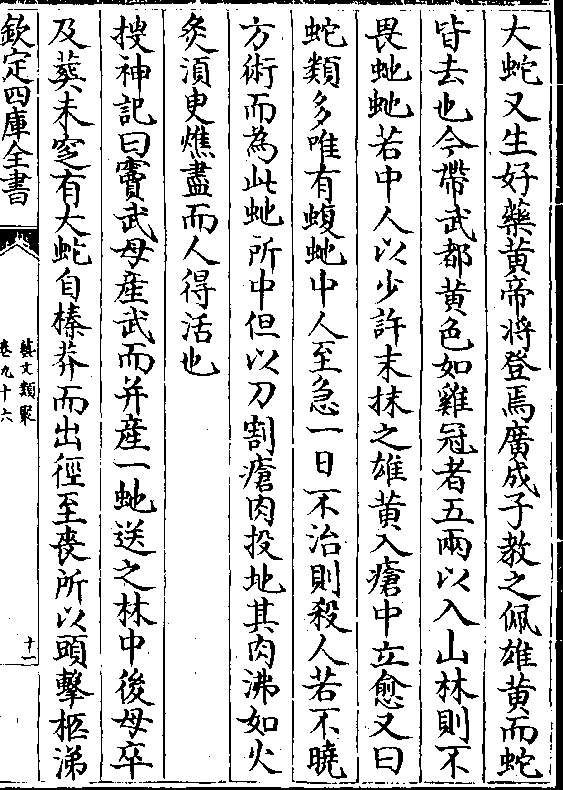 大蛇又生好藥黄帝将登焉廣成子教之佩雄黄而蛇
皆去也今帶武都黄色如雞冠者五兩以入山林則不
畏虵虵若中人以少許末抹之雄黄入瘡中立愈又曰
蛇類多唯有蝮虵中人至急一日不治則殺人若不曉
方術而為此虵所中但以刀割瘡肉投地其肉沸如火
炙湏㬰燋盡而人得活也
搜神記曰竇武母産武而并産一虵送之林中後母卒
及葬未窆有大蛇自榛莽而出徑至喪所以頭擊柩涕
欽定四庫全書
藝文類聚
卷九十六
十二